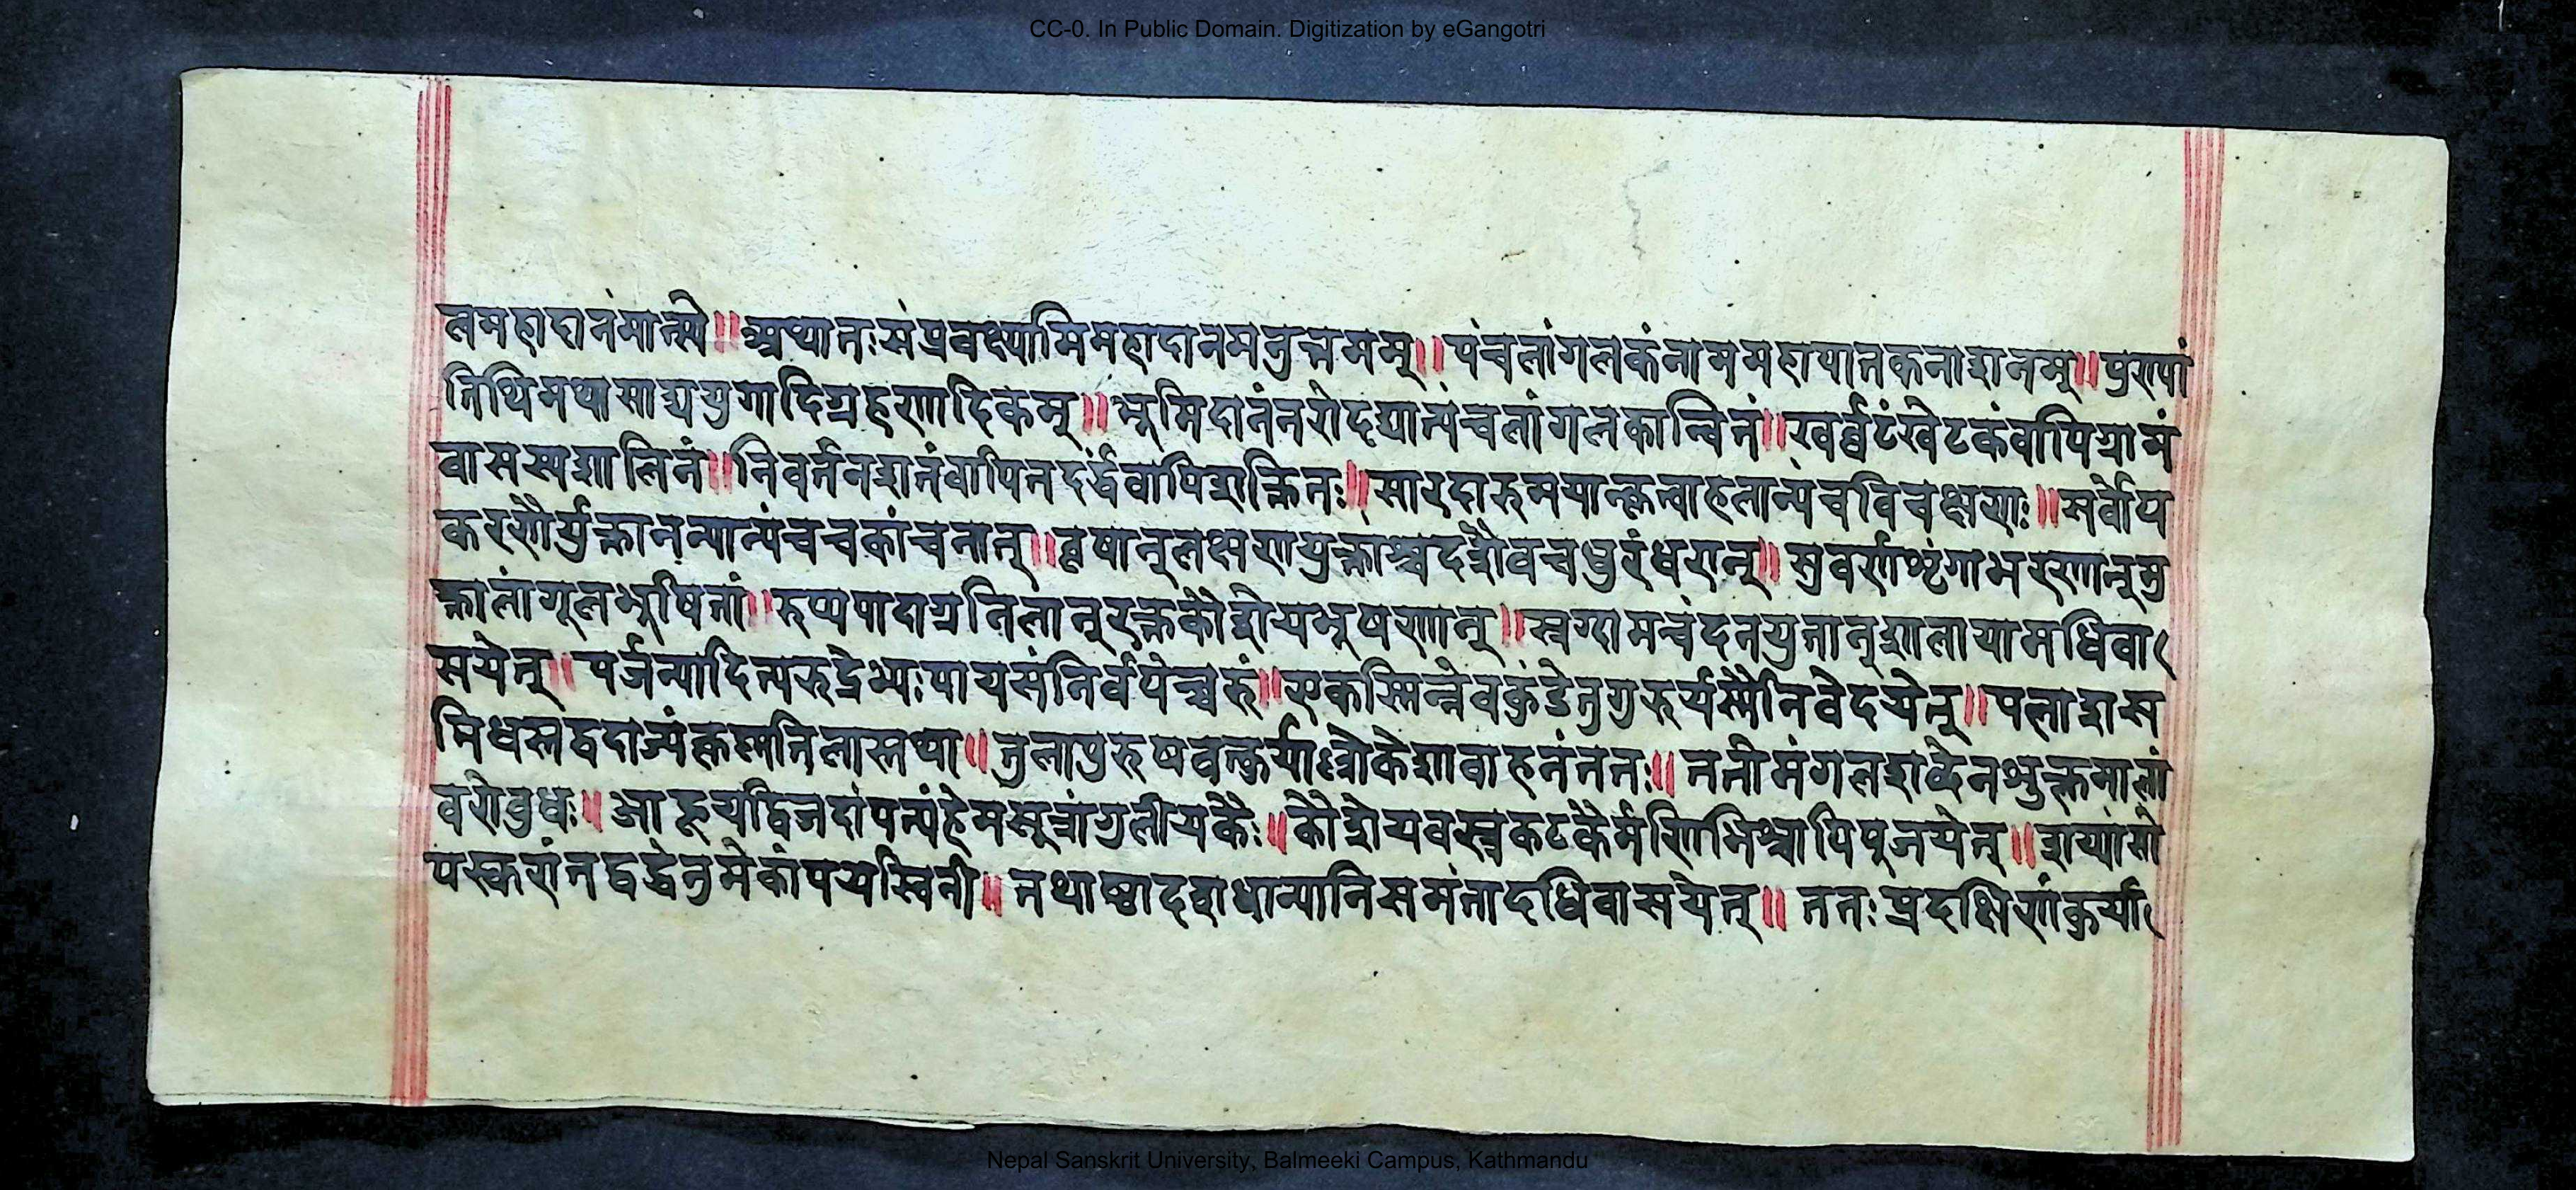 CC-0. In Public Domain. Digitization by eGangotri
लमहादानंमात्स्ये॥अथातःसंप्रवक्ष्यामिमहादानमनुत्तमम्॥पंचलांगलकंनाममहापातकनाशनम्॥पुण्यां
तिथिमथासाद्ययुगादिग्रहणादिकम्॥भूमिदानंनरोदद्यात्पंचलांगलकान्वितं॥खर्वटंखेटकंवापिग्रामं
वासस्यशालिनं॥निवर्तनशतंवापितदर्द्धंवापिशक्तितः॥सारदारुमयान्कृत्वाहलान्पंचविचक्षणः॥सर्वोप
करणैर्युक्तानन्यान्पंचचकांचनान्॥वृषान्लक्षणयुक्तांश्चदशैवचधुरंधरान्॥सुवर्णशृंगाभरणान्मु
क्तालांगूलभूषितां॥रुप्यपादाग्रतिलान्रक्तकौशेयभूषणान्॥स्रग्दामचंदनयुतान्शालायामधिवा
सयेत्॥पर्जन्यादित्यरुद्रेभ्यःपायसंनिर्वपेच्चरुं॥एकस्मिन्नेवकुंडेतुगुरुर्यस्मैनिवेदयेत्॥पलाशस
मिधस्तद्वदाज्यंकृष्णतिलास्तथा॥तुलापुरुषवत्कुर्याल्लोकेशावाहनंततः॥ततोमंगलशब्देनशुक्लमालां
वरोबुधः॥आहूयद्विजदांपत्यंहेमसूत्रांगुलीयकैः॥कौशेयवस्त्रकटकैर्मणिभिश्चापिपूजयेत्॥शय्यांसो
पस्करांतद्वद्धेनुमेकांपयस्विनी॥तथाष्टादशधान्यानिसमंतादधिवासयेत्॥ततःप्रदक्षिणंकुर्या
Nepal Sanskrit University, Balmeeki Campus, Kathmandu